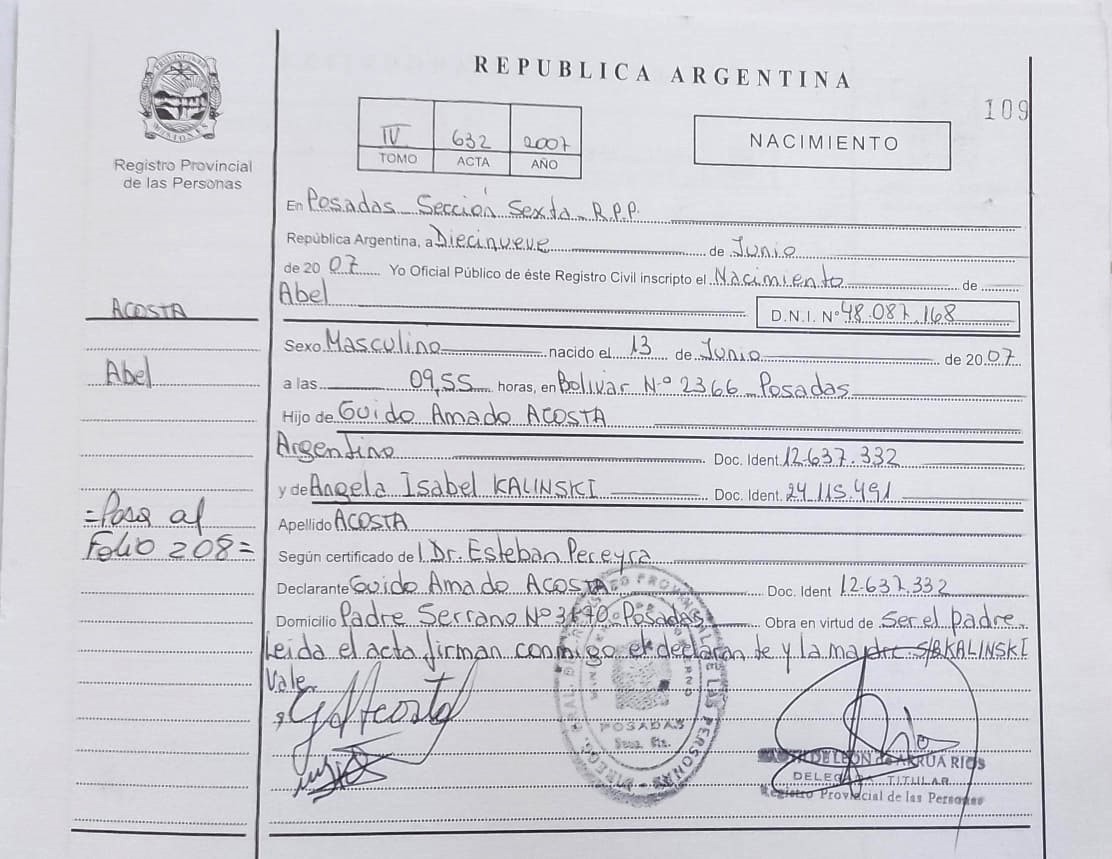 REPUBLICA ARGENTINA
109
MISIONES
Registro Provincial
de las Personas
IV 632 2007
TOMO ACTA AÑO
NACIMIENTO
En Posadas Sección Sexta R.P.P.
República Argentina, a Diecinueve de Junio
de 2007 Yo Oficial Público de éste Registro Civil inscripto el Nacimiento de
Abel
D.N.I. Nº 48.087.168
ACOSTA
Abel
Sexo Masculino nacido el 13 de Junio de 2007
a las 09,55 horas, en Bolívar Nº 2366 Posadas
Hijo de Guido Amado ACOSTA
Argentino Doc. Ident 12.637.332
y de Angela Isabel KALINSKI Doc. Ident. 24.115.491
=Pasa al
Folio 208=
Apellido ACOSTA
Según certificado de Dr. Esteban Pereyra
Declarante Guido Amado ACOSTA Doc. Ident 12.637.332
Domicilio Padre Serrano Nº Posadas Obra en virtud de Ser el padre
Leida el acta firman conmigo el declarante y la madre S/B KALINSKI
Vale
POSADAS
DE LEON de ARRUA RIOS
TITULAR
Registro Provincial de las Personas